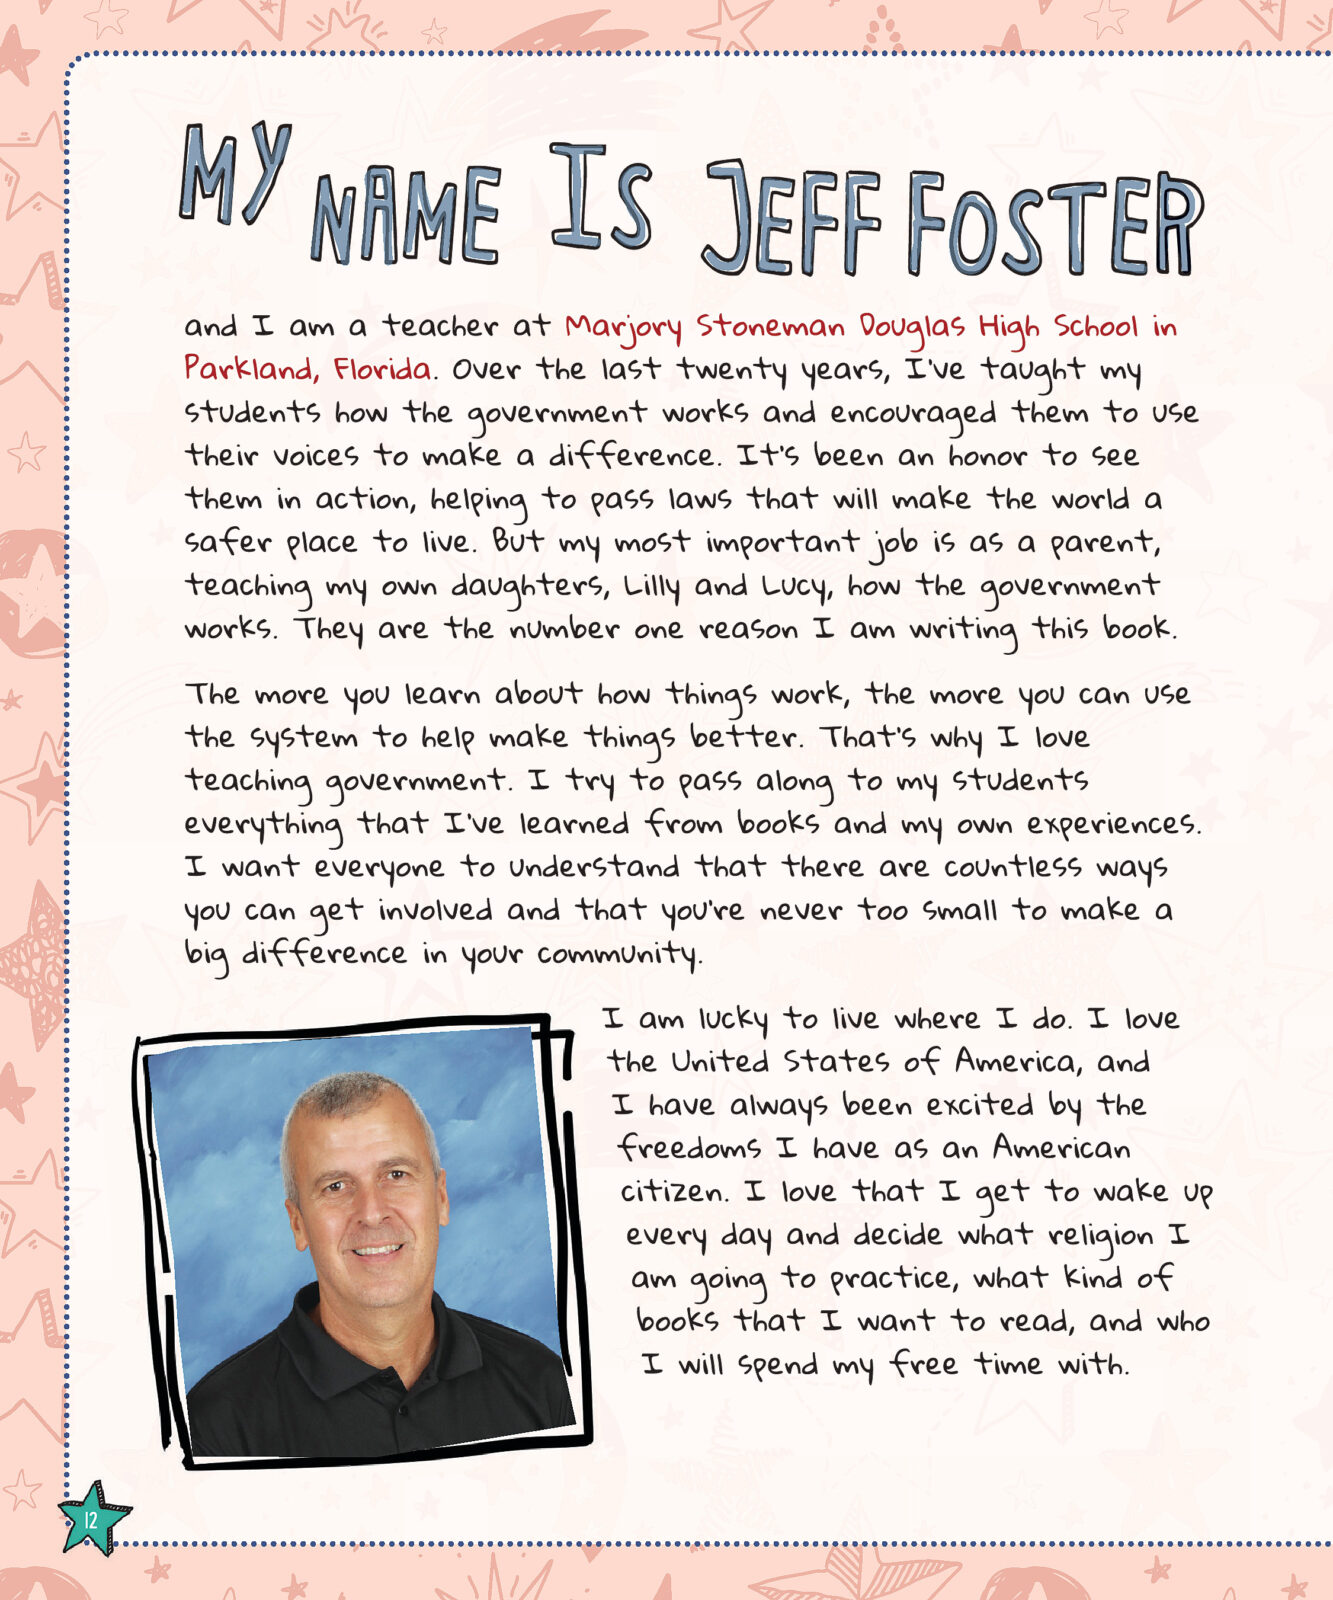 MY NAME IS JEFF FOSTER
and I am a teacher at Marjory Stoneman Douglas High School in
Parkland, Florida. Over the last twenty years, I've taught my
students how the government works and encouraged them to use
their voices to make a difference. It's been an honor to see
them in action, helping to pass laws that will make the world a
safer place to live. But my most important job is as a parent,
teaching my own daughters, Lilly and Lucy, how the government
works. They are the number one reason I am writing this book.
The more you learn about how things work, the more you can use
the system to help make things better. That's why I love
teaching government. I try to pass along to my students
everything that I've learned from books and my own experiences.
I want everyone to understand that there are countless ways
you can get involved and that you're never too small to make a
big difference in your community.
I am lucky to live where I do. I love
the United States of America, and
I have always been excited by the
freedoms I have as an American
citizen. I love that I get to wake up
every day and decide what religion I
am going to practice, what kind of
books that I want to read, and who
I will spend my free time with.
12